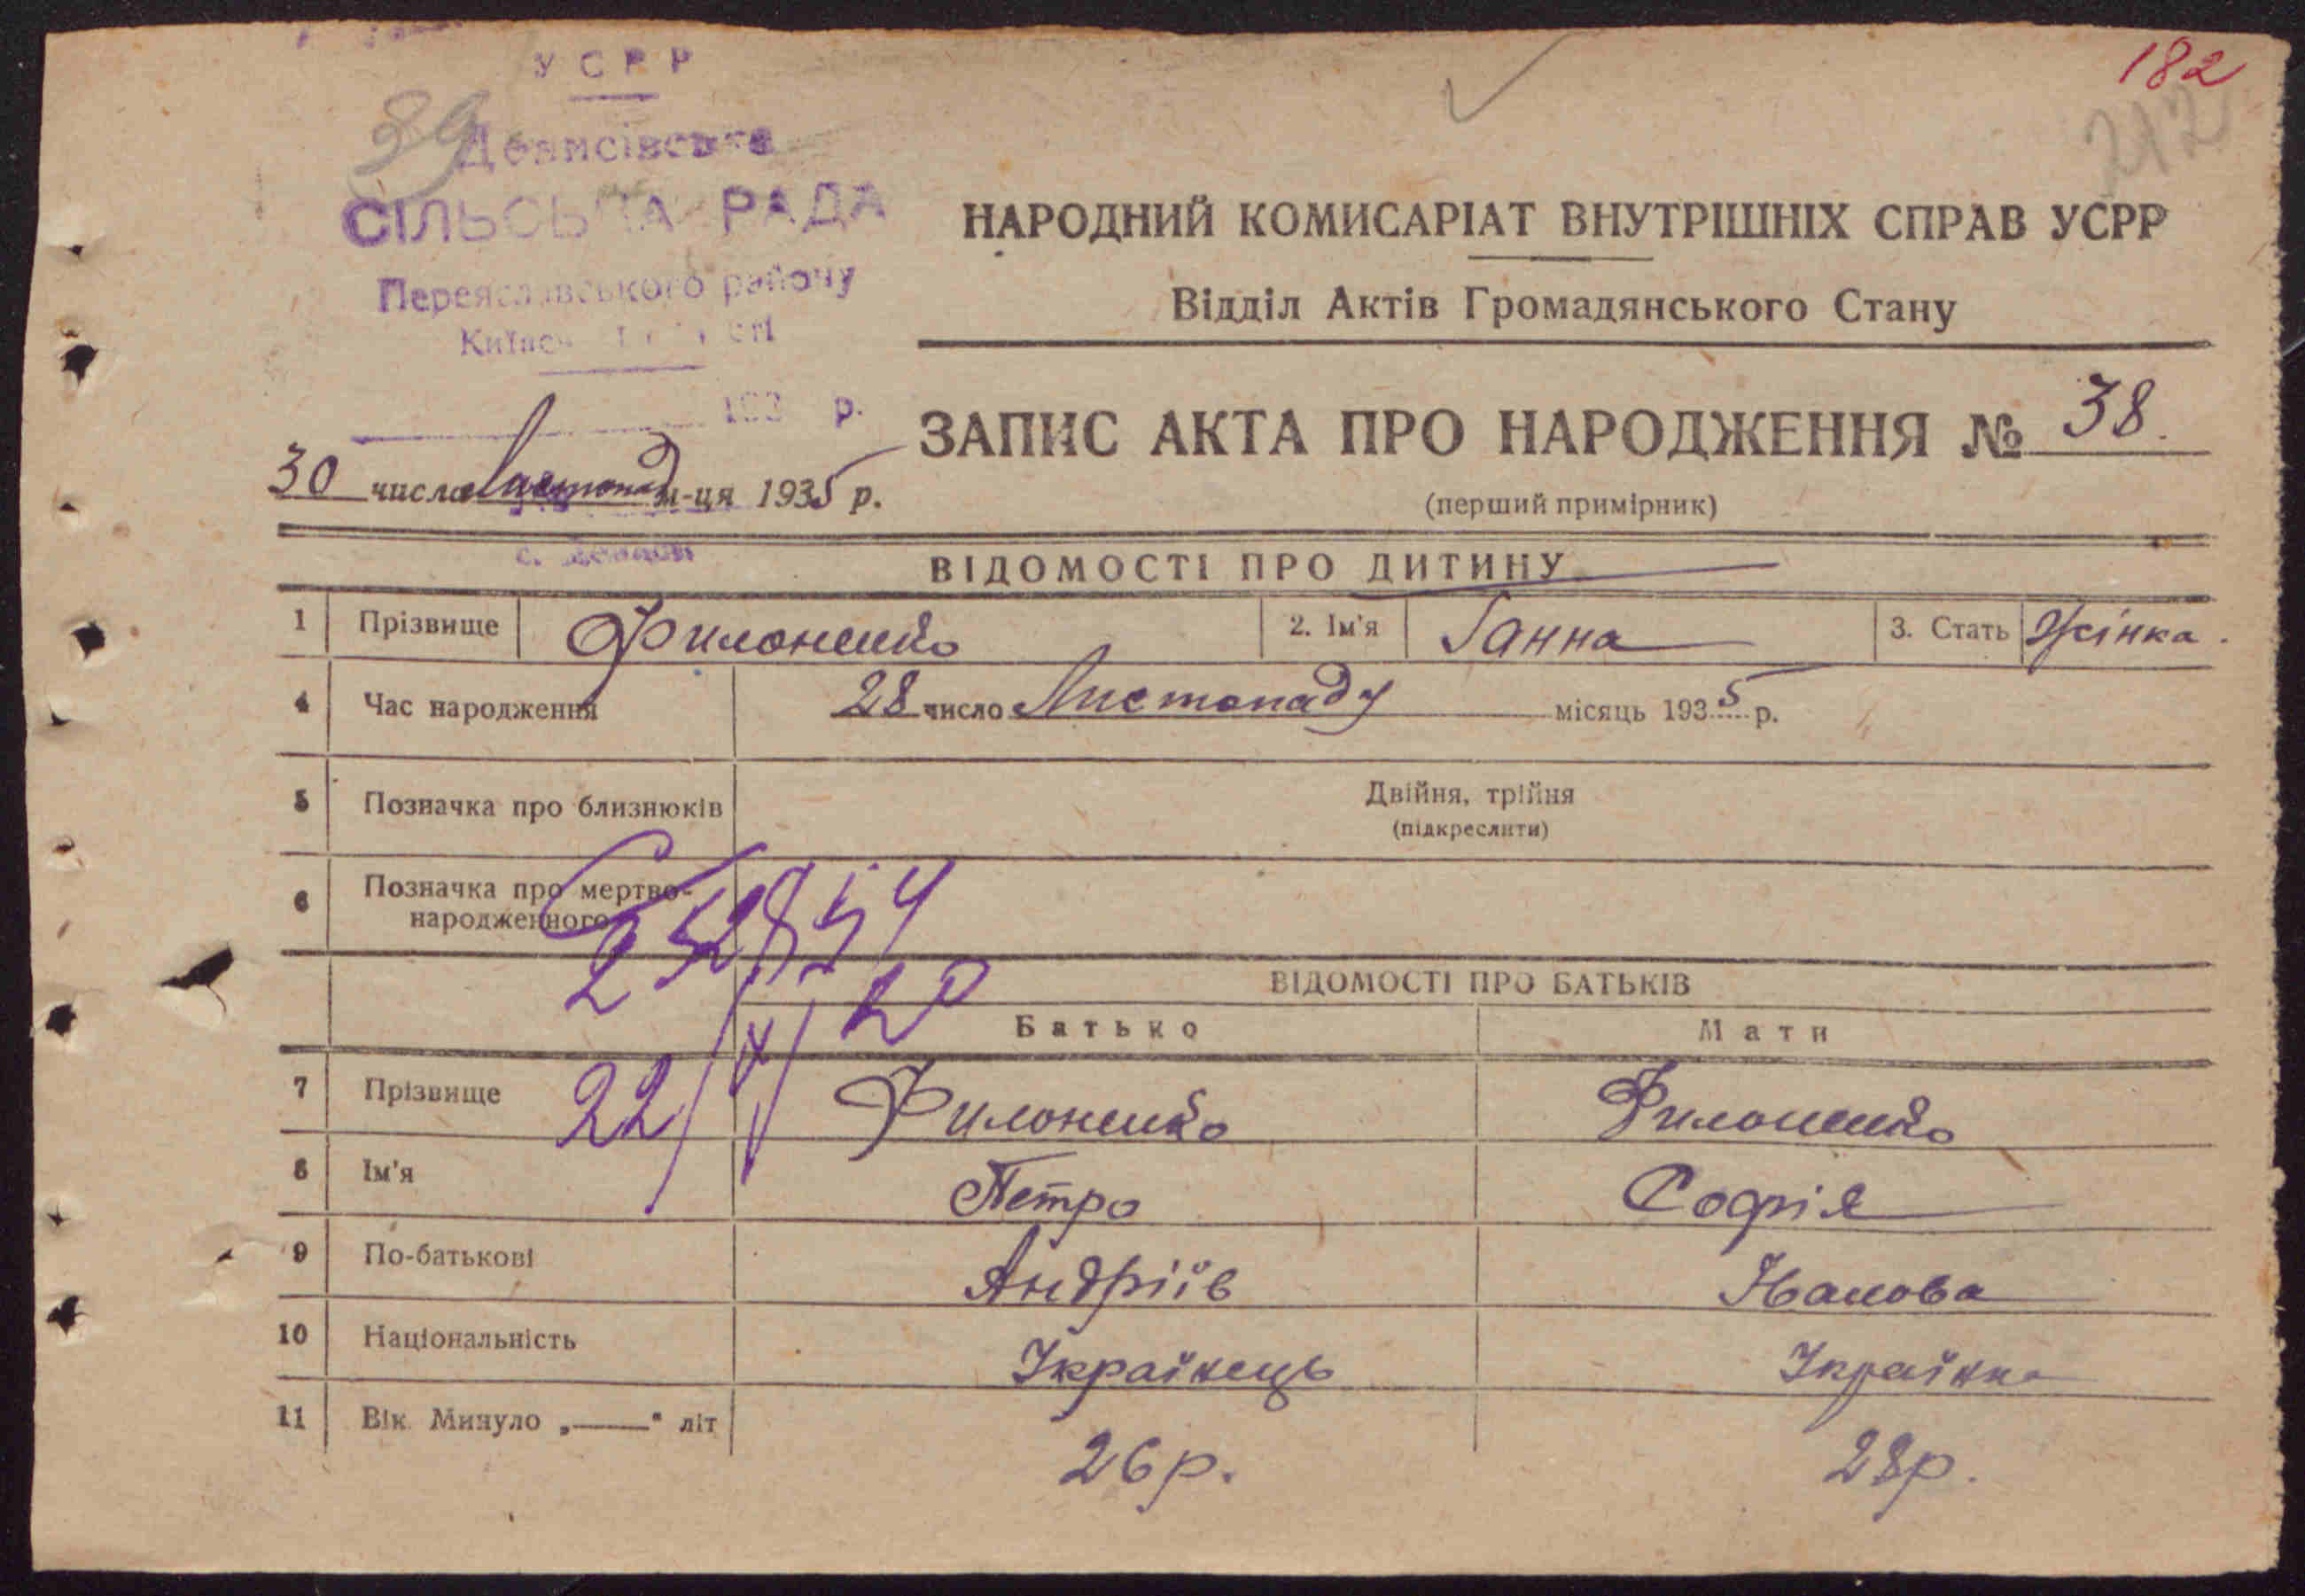 182
212
УСРР
39
Денисівська
СІЛЬСЬКА РАДА
Переяславського району
193 р.
30 числа Листопад м-ця 1935 р.
НАРОДНИЙ КОМИСАРІАТ ВНУТРІШНІХ СПРАВ УСРР
Відділ Актів Громадянського Стану
ЗАПИС АКТА ПРО НАРОДЖЕННЯ № 38.
(перший примірник)
ВІДОМОСТІ ПРО ДИТИНУ
1 Прізвище Филоненко 2. Ім'я Ганна 3. Стать Жінка.
4 Час народження 28 число Листопаду місяць 1935 р.
5 Позначка про близнюків Двійня, трійня
(підкреслити)
6 Позначка про мертво-
народженного
ВІДОМОСТІ ПРО БАТЬКІВ
Батько Мати
7 Прізвище Филоненко Филоненко
8 Ім'я Петро Софія
9 По-батькові Андріїв Іванова
10 Національність Українець Українка
11 Вік. Минуло „——" літ 26 р. 28 р.